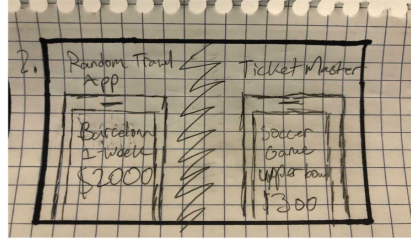 2.
Random Travel
App
Barcelona
1-week
$2000
Ticket Master
Soccer
Game
upper bowl
$300